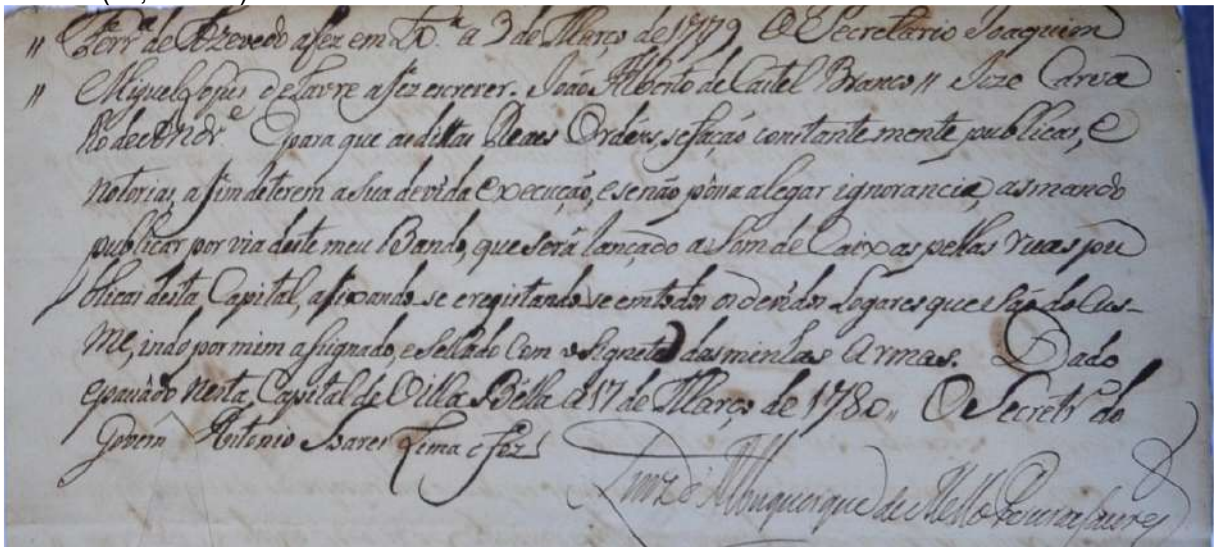 " Ferr.ª de Azevedo a fez em Lx.ª a 3 de Março de 1779 O Secretario Joaquim
" Miguel Lopes de Lavre a fez escrever. João Alberto de Castel Branco // Joze Carva
lho de Andr.e E para que as dittas Reaes Ordens, se fação constantemente publicas, e
notorias, a fim de terem a sua devida execução, e se não possa alegar ignorancia, as mando
publicar por via deste meu Bando, que será lançado a som de Caixas pellas ruas pu
blicas desta Capital, afixando-se e registando-se em todos os devidos Logares que são do Cus-
me, indo por mim assignado, e sellado Com o signete das minhas Armas. Dado
e passado nesta Capital de Villa Bella a 17 de Março de 1780,, O Secretr.º do
Governo Antonio Soares Lima o fez
Luiz d'Albuquerque de Mello Pereira Caceres